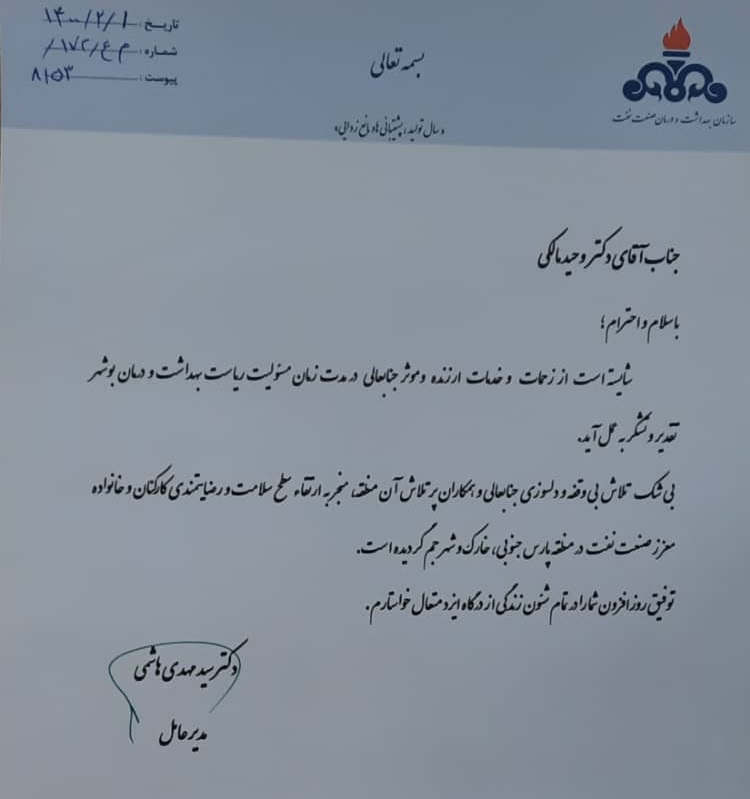 تاریخ: ۱۴۰۰/۲/۱
شماره: م ع/۱۷۲/
پیوست: ۸۱۵۳
بسمه تعالی
«سال تولید، پشتیبانی‌ها، مانع زدایی‌ها»
سازمان بهداشت و درمان صنعت نفت
جناب آقای دکتر وحید مالکی
باسلام و احترام؛
شایسته است از زحمات و خدمات ارزنده و موثر جنابعالی در مدت زمان مسئولیت ریاست بهداشت و درمان بوشهر
تقدیر و تشکر به عمل آید.
بی شک تلاش بی وقفه و دلسوزی جنابعالی و همکاران پر تلاش آن منطقه، منجر به ارتقاء سطح سلامت و رضایتمندی کارکنان و خانواده
معزز صنعت نفت در منطقه پارس جنوبی، خارک و شهر جم گردیده است.
توفیق روز افزون شما را در تمام شئون زندگی از درگاه ایزد متعال خواستارم.
دکتر سید مهدی هاشمی
مدیرعامل